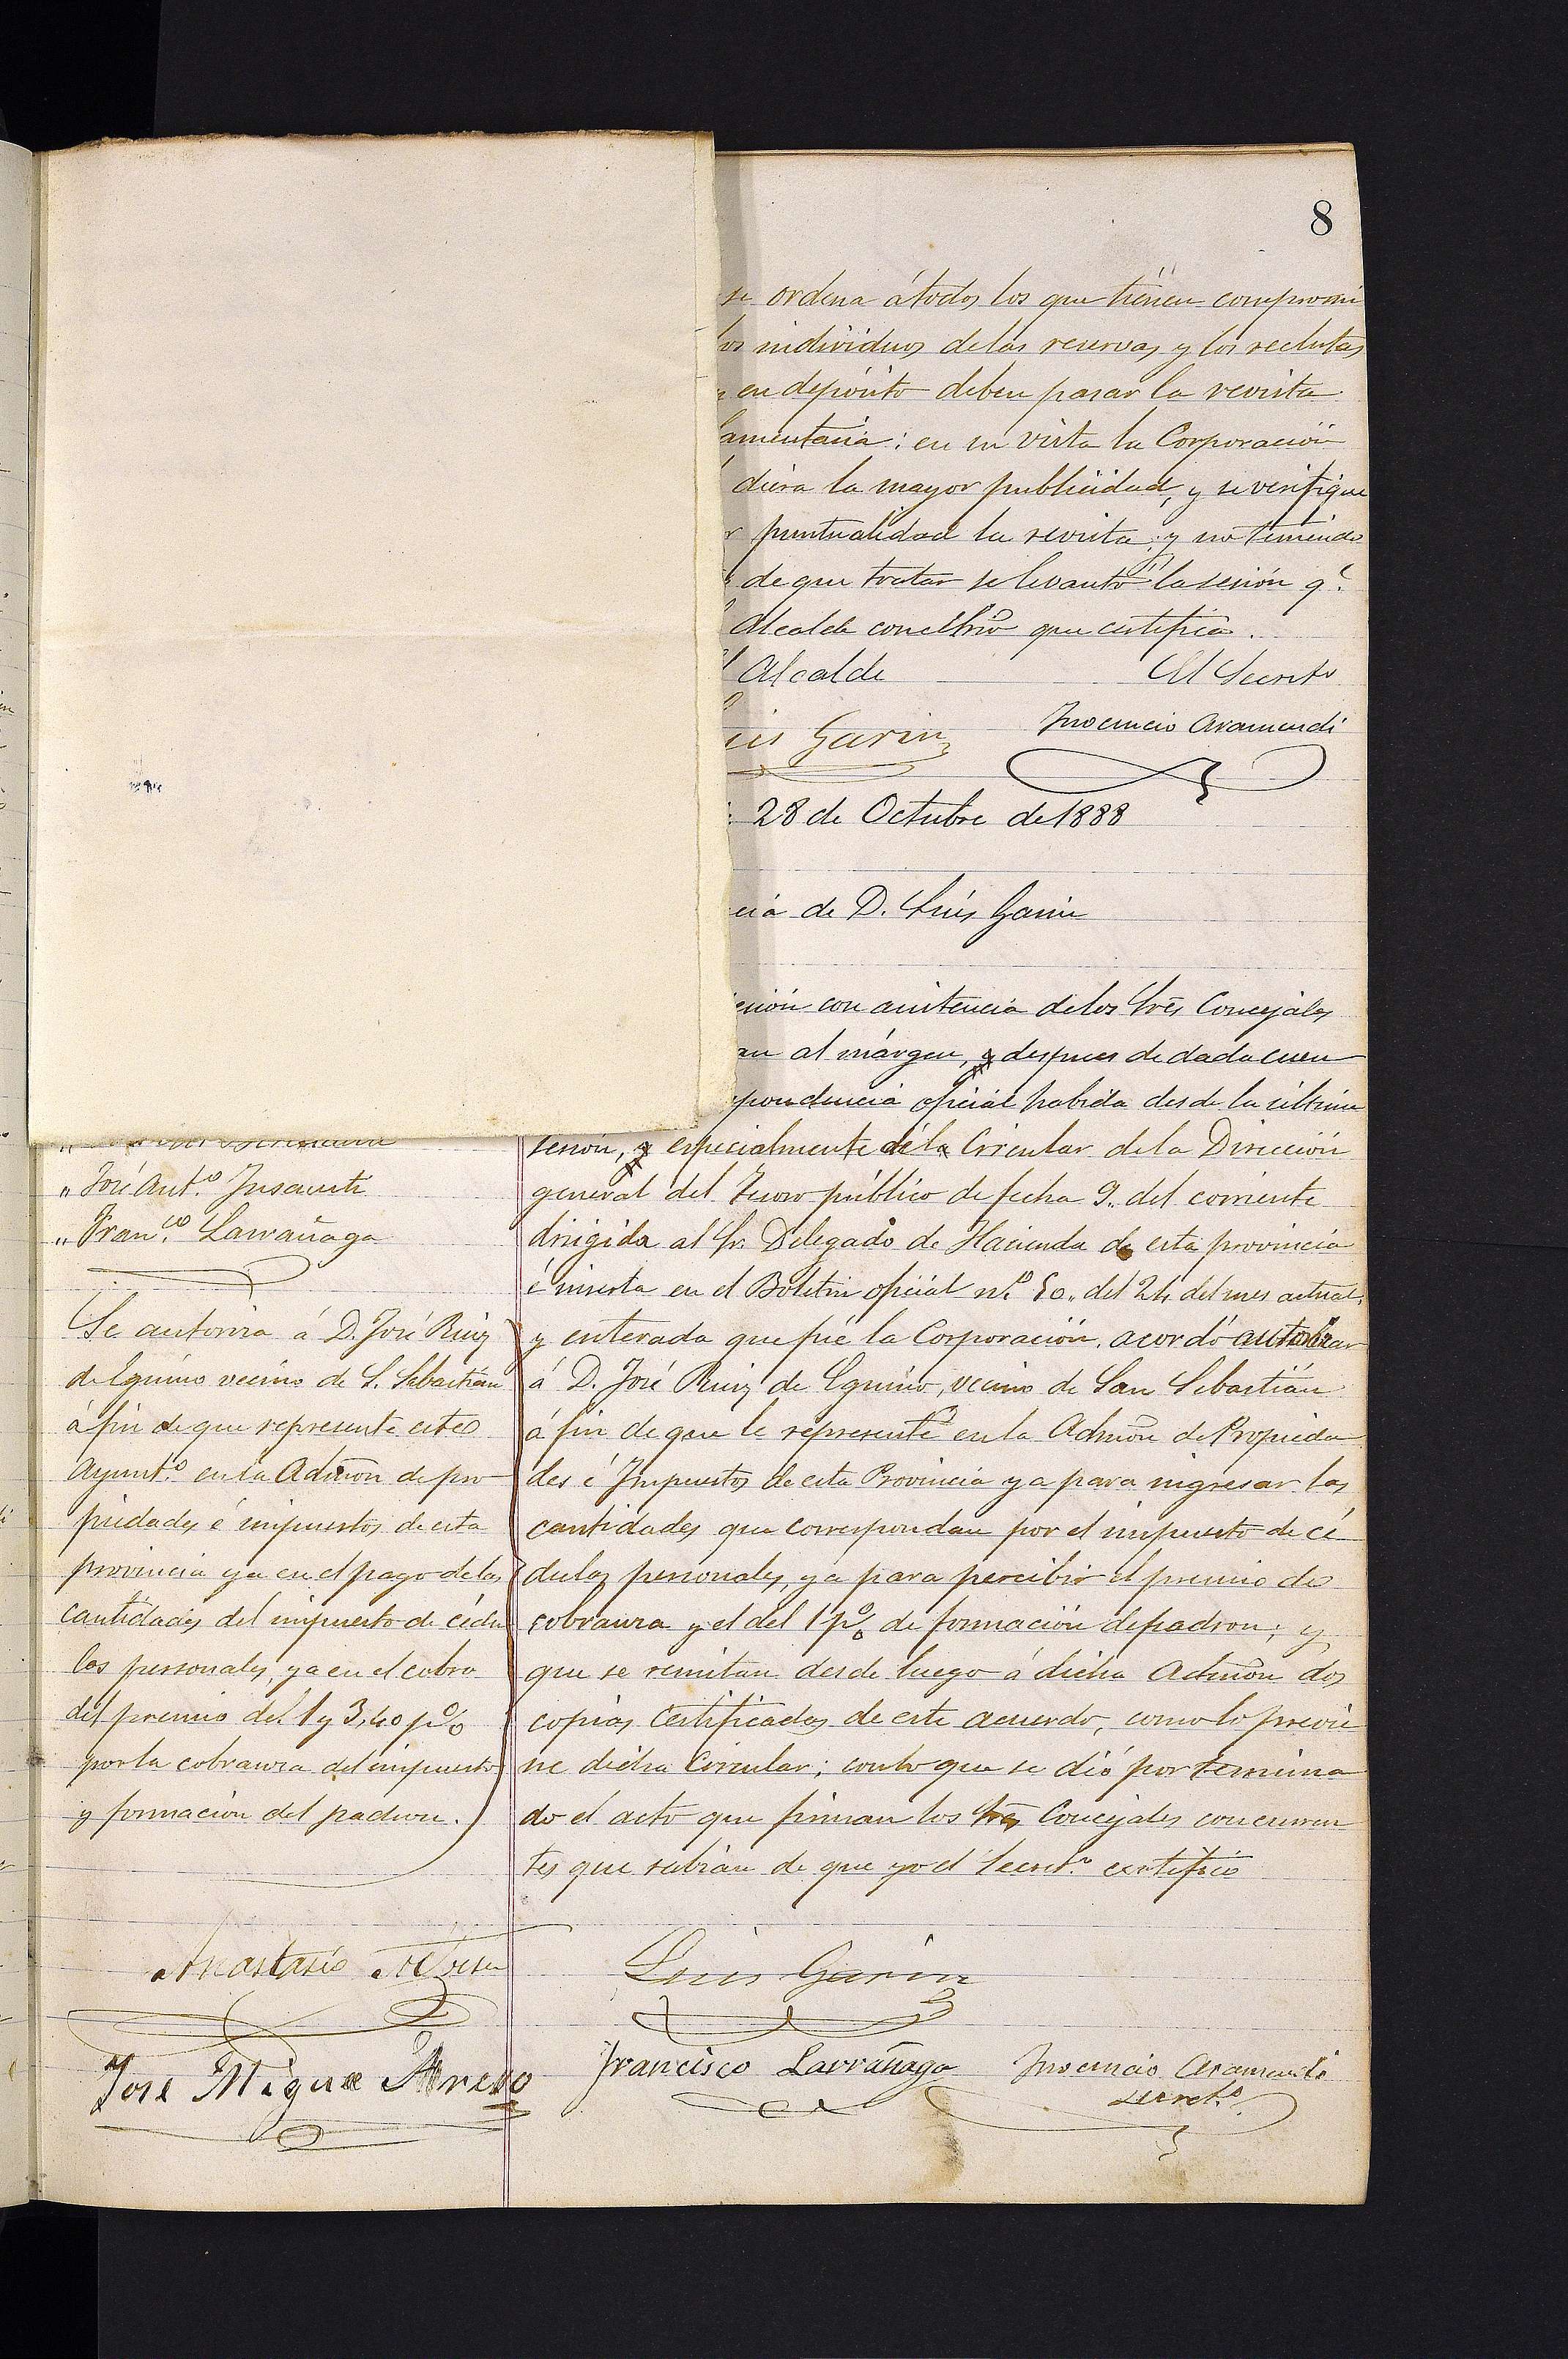 8
se ordena á todos los que tienen compromi
los individuos de las reservas y los reclutas
en depósito deben pasar la revista
lamentaria: en su vista la Corporación
diera la mayor publicidad, y se verifique
puntualidad la revista; y no teniendo
de que tratar se levantó la sesión q.e
Alcalde con el Srio que certifica.
Alcalde
El Secret.o
uis Garin
Inocencio Aramendi
28 de Octubre de 1888
cia de D. Luis Garin
esión con asistencia de los Sres Concejales
an al márgen, y despues de dada cuen
spondencia oficial habida desde la última
sesion, y especialmente de la Circular de la Dirección
general del Tesoro público de fecha 9. del corriente
dirigida al Sr. Delegado de Hacienda de esta provincia
é inserta en el Boletin oficial n.o 50. del 24 del mes actual,
y enterada que fué la Corporación, acordó autorizar
á D. José Ruiz de Eguino, vecino de San Sebastián
á fin de que le represente en la Admõn de Propieda
des é Impuestos de esta Provincia ya para ingresar las
cantidades que correspondan por el impuesto de cé
dulas personales, ya para percibir el premio de
cobranza y el del 1 p% de formación de padron; y
que se remitan desde luego á dicha Admõn dos
copias certificadas de este acuerdo, como lo previe
ne dicha Circular; con lo que se dió por termina
do el acto que firman los Sres Concejales concurren
tes que sabian de que yo el Secret.o certifico
" José Ant.o Insausti
" Fran.co Larrañaga
Se autoriza á D. José Ruiz
de Eguino vecino de S. Sebastián
á fin de que represente este
Ayunt.o en la Admon de pro
piedades é impuestos de esta
provincia ya en el pago de las
cantidades del impuesto de cédu
las personales, ya en el cobro
del premio del 1 y 3,40 p%
por la cobranza del impuesto
y formacion del padron.
Anastasio
Luis Garin
José Migue
Francisco Larrañaga
Inocencio Aramendi
Secret.o